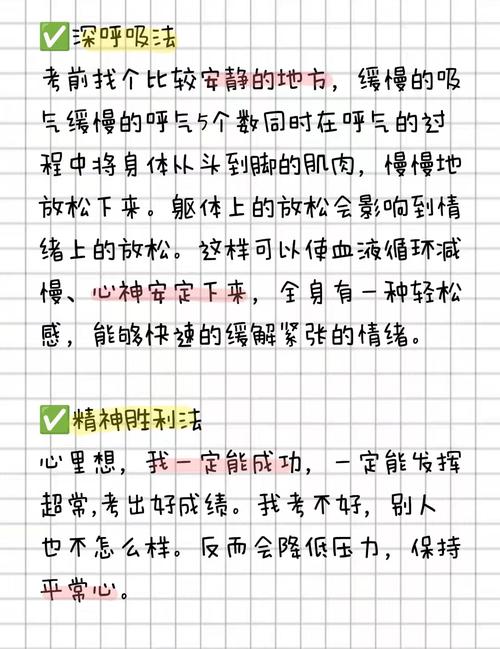 ✅深呼吸法
考前找个比较安静的地方，缓慢的吸
气缓慢的呼气5个数同时在呼气的过
程中将身体从头到脚的肌肉，慢慢地
放松下来。躯体上的放松会影响到情
绪上的放松。这样可以使血液循环减
慢、心神安定下来，全身有一种轻松
感，能够快速的缓解紧张的情绪。
✅精神胜利法
心里想，我一定能成功，一定能发挥
超常,考出好成绩。我考不好，别人
也不怎么样。反而会降低压力，保持
平常心。